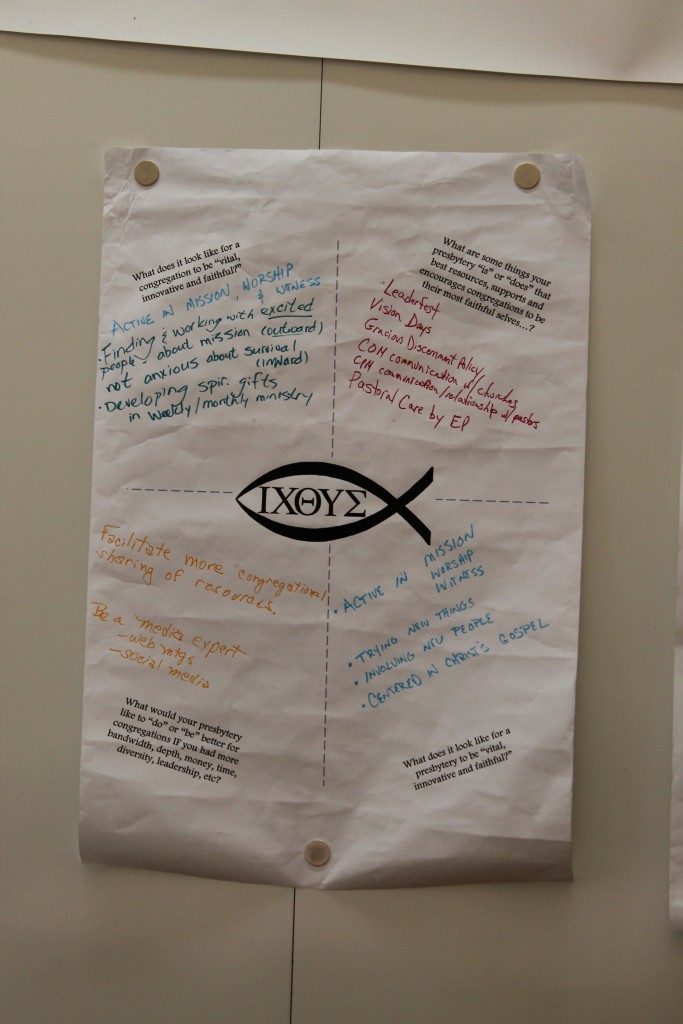 What does it look like for a
congregation to be "vital,
innovative and faithful?"
ACTIVE IN MISSION, WORSHIP
& WITNESS
• Finding & working with excited
people - about mission (outward)
not anxious about survival
(inward)
• Developing spir. gifts
in weekly/monthly ministry
What are some things your
presbytery "is" or "does" that
best resources, supports and
encourages congregations to be
their most faithful selves...?
• Leaderfest
Vision Days
Gracious Discernment Policy
COM communication w/ churches
CPM communication/relationship w/ pastors
Pastoral Care by EP
ΙΧΘΥΣ
Facilitate more congregational
sharing of resources.
Be a media expert
- web mtgs
- social media
What would your presbytery
like to "do" or "be" better for
congregations IF you had more
bandwidth, depth, money, time,
diversity, leadership, etc?
• ACTIVE IN MISSION
WORSHIP
WITNESS
• TRYING NEW THINGS
• INVOLVING NEW PEOPLE
• CENTERED IN CHRIST'S GOSPEL
What does it look like for a
presbytery to be "vital,
innovative and faithful?"